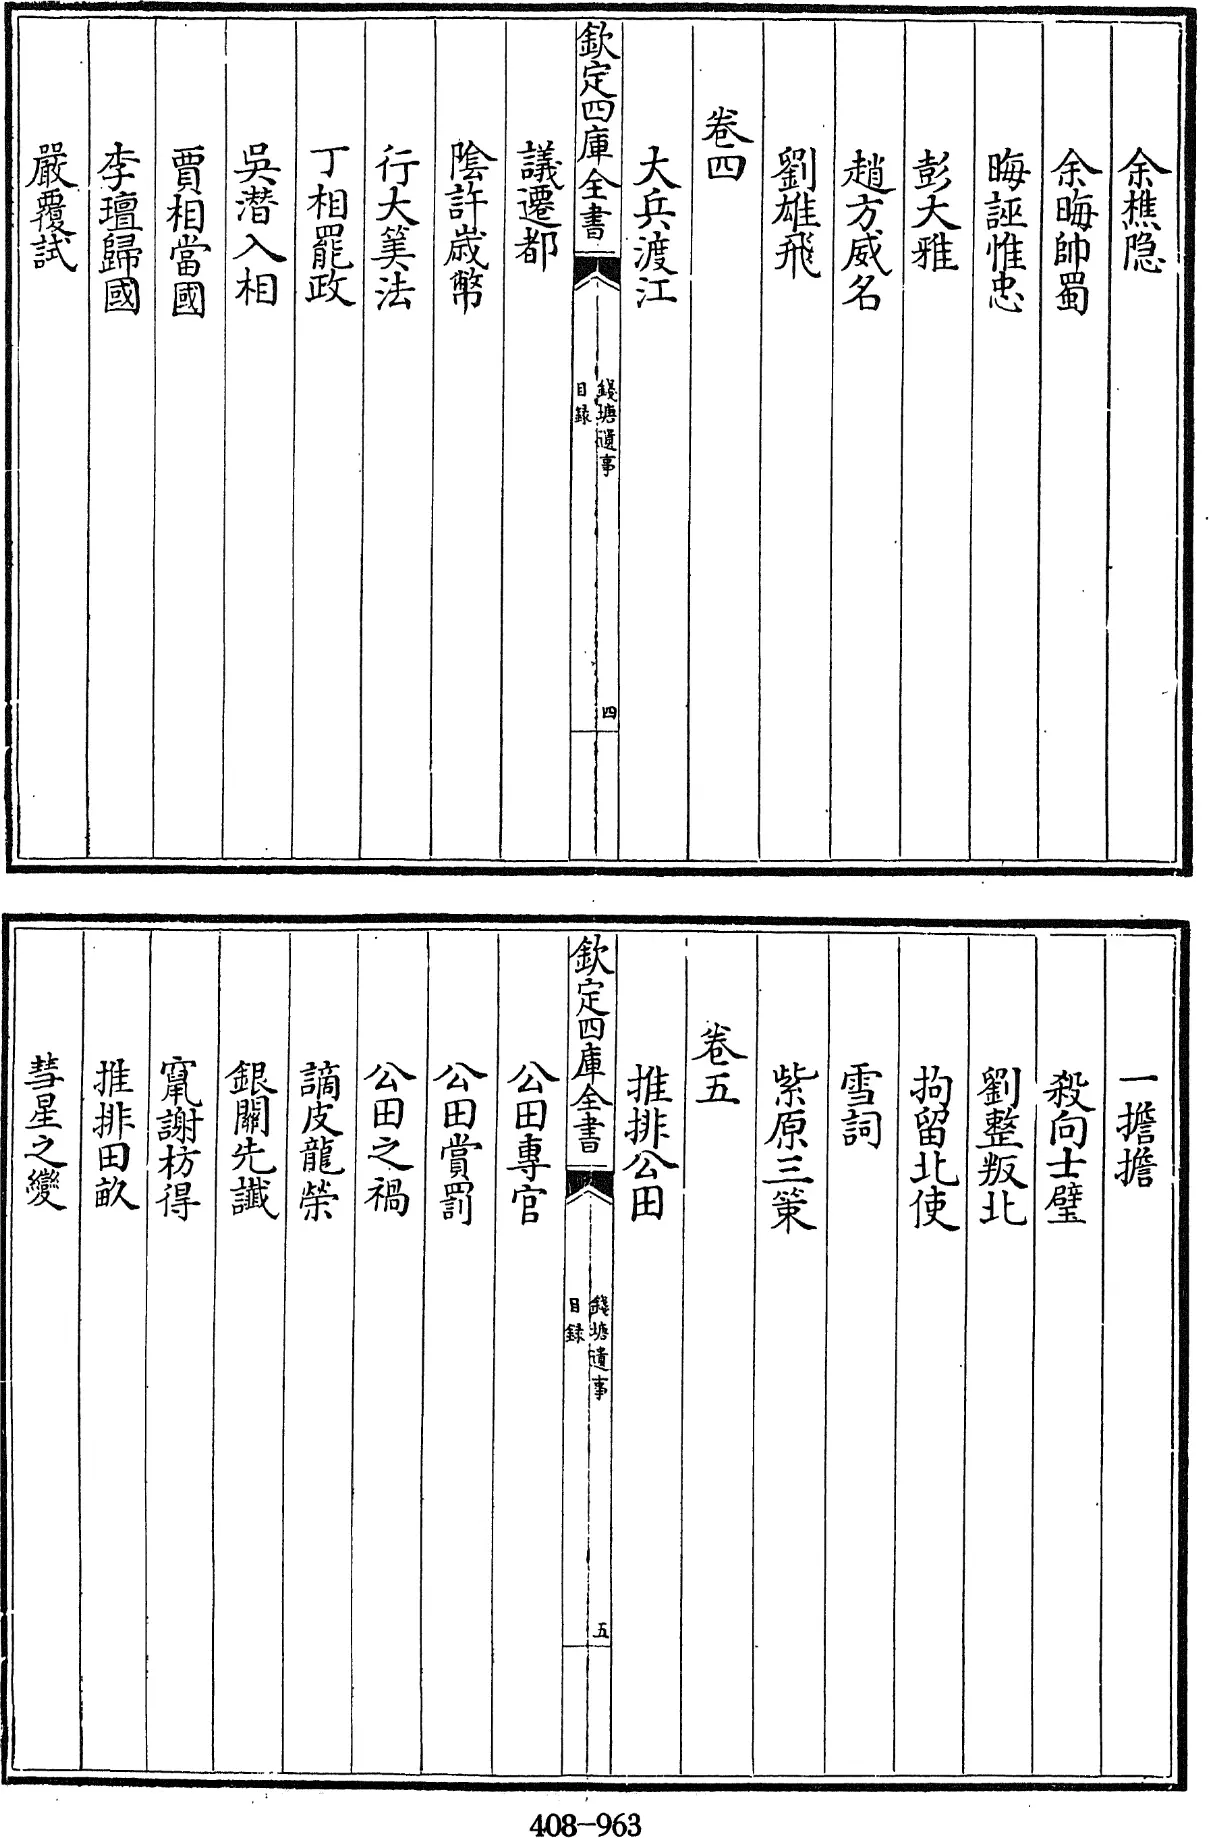 余樵隐
余晦帥蜀
晦誣惟忠
彭大雅
趙方威名
劉雄飛
卷四
大兵渡江
欽定四庫全書
錢塘遺事
目録
四
議遷都
陰許歲幣
行大筭法
丁相罷政
吳潛入相
賈相當國
李璮歸國
嚴覆試
一擔擔
殺向士璧
劉整叛北
拘留北使
雪詞
紫原三策
卷五
推排公田
欽定四庫全書
錢塘遺事
目録
五
公田專官
公田賞罰
公田之禍
謫皮龍榮
銀關先讖
竄謝枋得
推排田畝
彗星之變
408-963